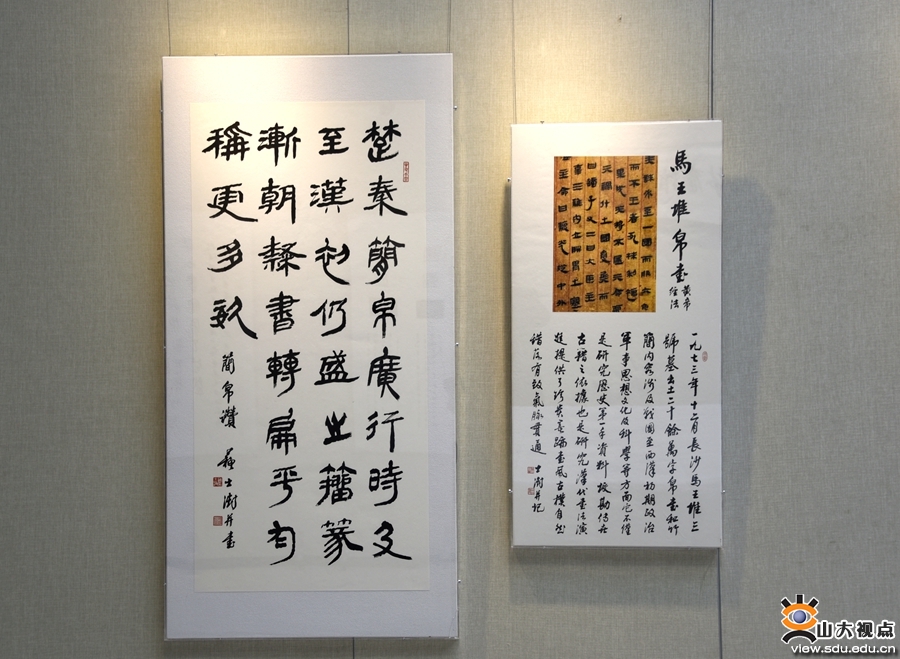 楚秦簡帛廣行時及
至漢初仍盛之籀篆
漸朝隸書轉扁平勻
稱更多姿
簡帛讚 蘇士澍并書
馬王堆帛書
黃帝
經法
一九七三年十二月長沙馬王堆三
號墓出土二十餘萬字帛書和竹
簡內容涉及戰國至西漢初期政治
軍事思想文化及科學等方面它不僅
是研究歷史第一手資料校勘傳世
古籍之依據也是研究漢代書法演
變提供了珍貴墨跡書風古樸自然
錯落有致氣脈貫通 士澍并記
山大视点
view.sdu.edu.cn